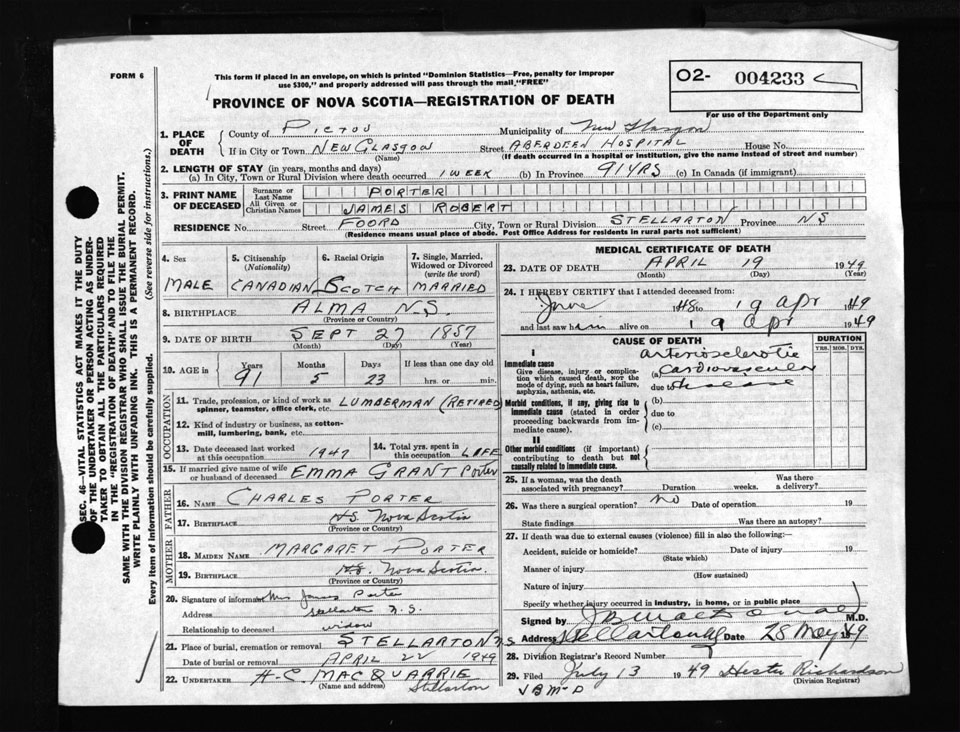 FORM 6
This form if placed in an envelope, on which is printed "Dominion Statistics—Free, penalty for improper
use $300," and properly addressed will pass through the mail "FREE"
O2- 004233
For use of the Department only
PROVINCE OF NOVA SCOTIA—REGISTRATION OF DEATH
1. PLACE OF DEATH
County of PICTOU Municipality of New Glasgow
If in City or Town NEW GLASGOW Street ABERDEEN HOSPITAL House No.
(Name) (If death occurred in a hospital or institution, give the name instead of street and number)
2. LENGTH OF STAY (in years, months and days)
(a) In City, Town or Rural Division where death occurred 1 WEEK (b) In Province 91 YRS (c) In Canada (if immigrant)
3. PRINT NAME OF DECEASED
Surname or Last Name PORTER
All Given or Christian Names JAMES ROBERT
RESIDENCE No. Street FOORD City, Town or Rural Division STELLARTON Province NS
(Residence means usual place of abode. Post Office Address for residents in rural parts not sufficient)
4. Sex
MALE
5. Citizenship (Nationality)
CANADIAN
6. Racial Origin
SCOTCH
7. Single, Married, Widowed or Divorced (write the word)
MARRIED
8. BIRTHPLACE ALMA N.S.
(Province or Country)
9. DATE OF BIRTH SEPT 27 1857
(Month) (Day) (Year)
10. AGE in Years Months Days If less than one day old
91 5 23 hrs. or min.
OCCUPATION
11. Trade, profession or kind of work as spinner, teamster, office clerk, etc. LUMBERMAN (RETIRED)
12. Kind of industry or business, as cotton-mill, lumbering, bank, etc.
13. Date deceased last worked at this occupation 1947
14. Total yrs. spent in this occupation LIFE
15. If married give name of wife or husband of deceased EMMA GRANT Porter
FATHER
16. NAME CHARLES PORTER
17. BIRTHPLACE N.S. Nova Scotia
(Province or Country)
MOTHER
18. MAIDEN NAME MARGARET PORTER
19. BIRTHPLACE N.S. Nova Scotia.
(Province or Country)
20. Signature of informant Mrs James Porter
Address Stellarton N.S.
Relationship to deceased widow
21. Place of burial, cremation or removal STELLARTON N.S.
Date of burial or removal APRIL 22 1949
22. UNDERTAKER H-C. MACQUARRIE
(Name and address) Stellarton
MEDICAL CERTIFICATE OF DEATH
23. DATE OF DEATH APRIL 19 1949
(Month) (Day) (Year)
24. I HEREBY CERTIFY that I attended deceased from:
June 48 to 19 Apr 1949
and last saw him alive on 19 Apr 1949
CAUSE OF DEATH
DURATION
YRS. MOS. DYS.
I
Immediate cause
Give disease, injury or complication which caused death, NOT the mode of dying, such as heart failure, asphyxia, asthenia, etc.
arteriosclerotic
(a) cardiovascular
due to disease
Morbid conditions, if any, giving rise to immediate cause (stated in order proceeding backwards from immediate cause).
(b)
due to
(c)
II
Other morbid conditions (if important) contributing to death but not causally related to immediate cause.
25. If a woman, was the death associated with pregnancy? Duration weeks. Was there a delivery?
26. Was there a surgical operation? no Date of operation 19
State findings Was there an autopsy?
27. If death was due to external causes (violence) fill in also the following:—
Accident, suicide or homicide? Date of injury 19
(State which)
Manner of injury
(How sustained)
Nature of injury
Specify whether injury occurred in industry, in home, or in public place
Signed by M.D.
Address Stellarton Date 28 May 1949
28. Division Registrar's Record Number
29. Filed July 13 1949 Hester Richardson
(Division Registrar)
SEC. 46—VITAL STATISTICS ACT MAKES IT THE DUTY
OF THE UNDERTAKER OR PERSON ACTING AS UNDER-
TAKER TO OBTAIN ALL THE PARTICULARS REQUIRED
IN THE "REGISTRATION OF DEATH" AND TO FILE THE
SAME WITH THE DIVISION REGISTRAR WHO SHALL ISSUE THE BURIAL PERMIT.
WRITE PLAINLY WITH UNFADING INK. THIS IS A PERMANENT RECORD.
Every item of information should be carefully supplied. (See reverse side for instructions.)